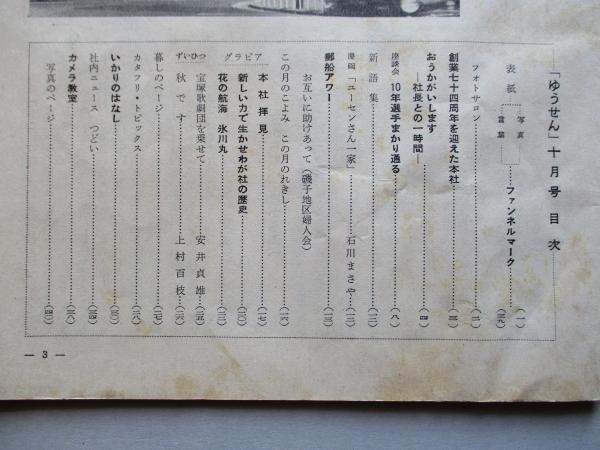 「ゆうせん」十月号 目次
表紙 写真 言葉 ファンネルマーク (一) (三九)
フォトサロン (二)
創業七十四周年を迎えた本社 (三)
おうかがいします
―社長との一時間― (四)
座談会 10年選手まかり通る (八)
新語集 (一二)
漫画 「ユーセンさん一家」 石川まさや (一二)
郵船アワー (一三)
お互いに助けあって(磯子地区婦人会)
この月のこよみ この月のれきし (一六)
グラビア
本社拝見 (一七)
新しい力で生かせわが社の歴史 (二〇)
花の航海 氷川丸 (二二)
ずいひつ
宝塚歌劇団を乗せて 安井貞雄 (二五)
秋です 上村百枝 (二六)
暮しのページ (二七)
カタフリ・トピックス (二八)
いかりのはなし (三〇)
社内ニュース つどい (三四)
カメラ教室 (三八)
写真のページ (四〇)
— 3 —